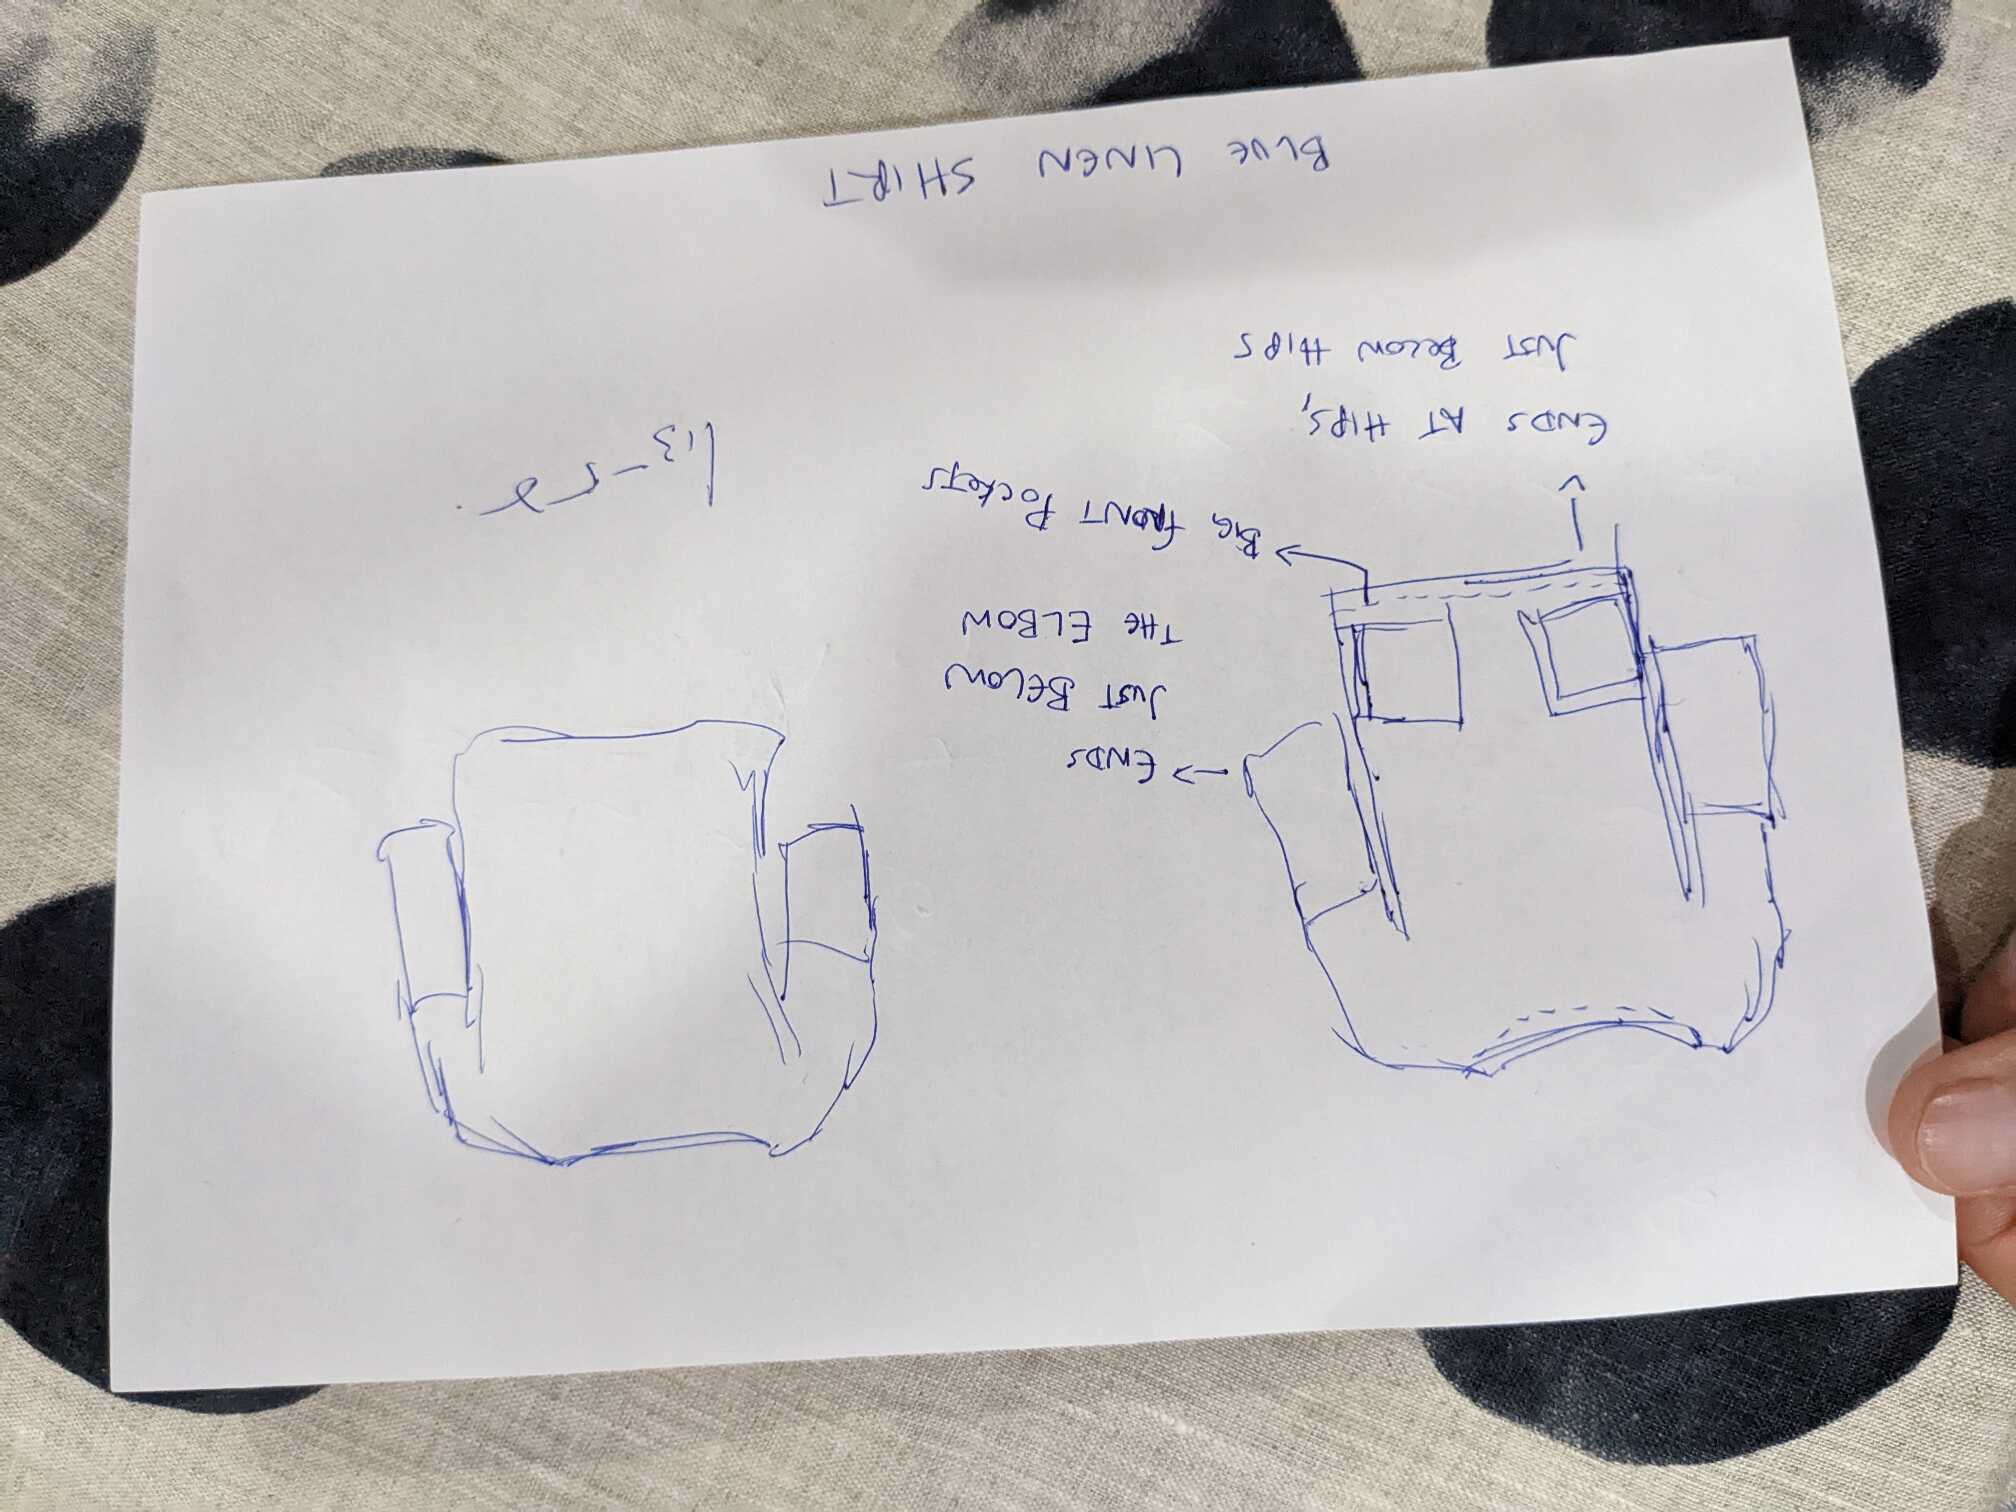 ENDS
JUST BELOW
THE ELBOW
BIG FRONT POCKETS
ENDS AT HIPS,
JUST BELOW HIPS
BLUE LINEN SHIRT